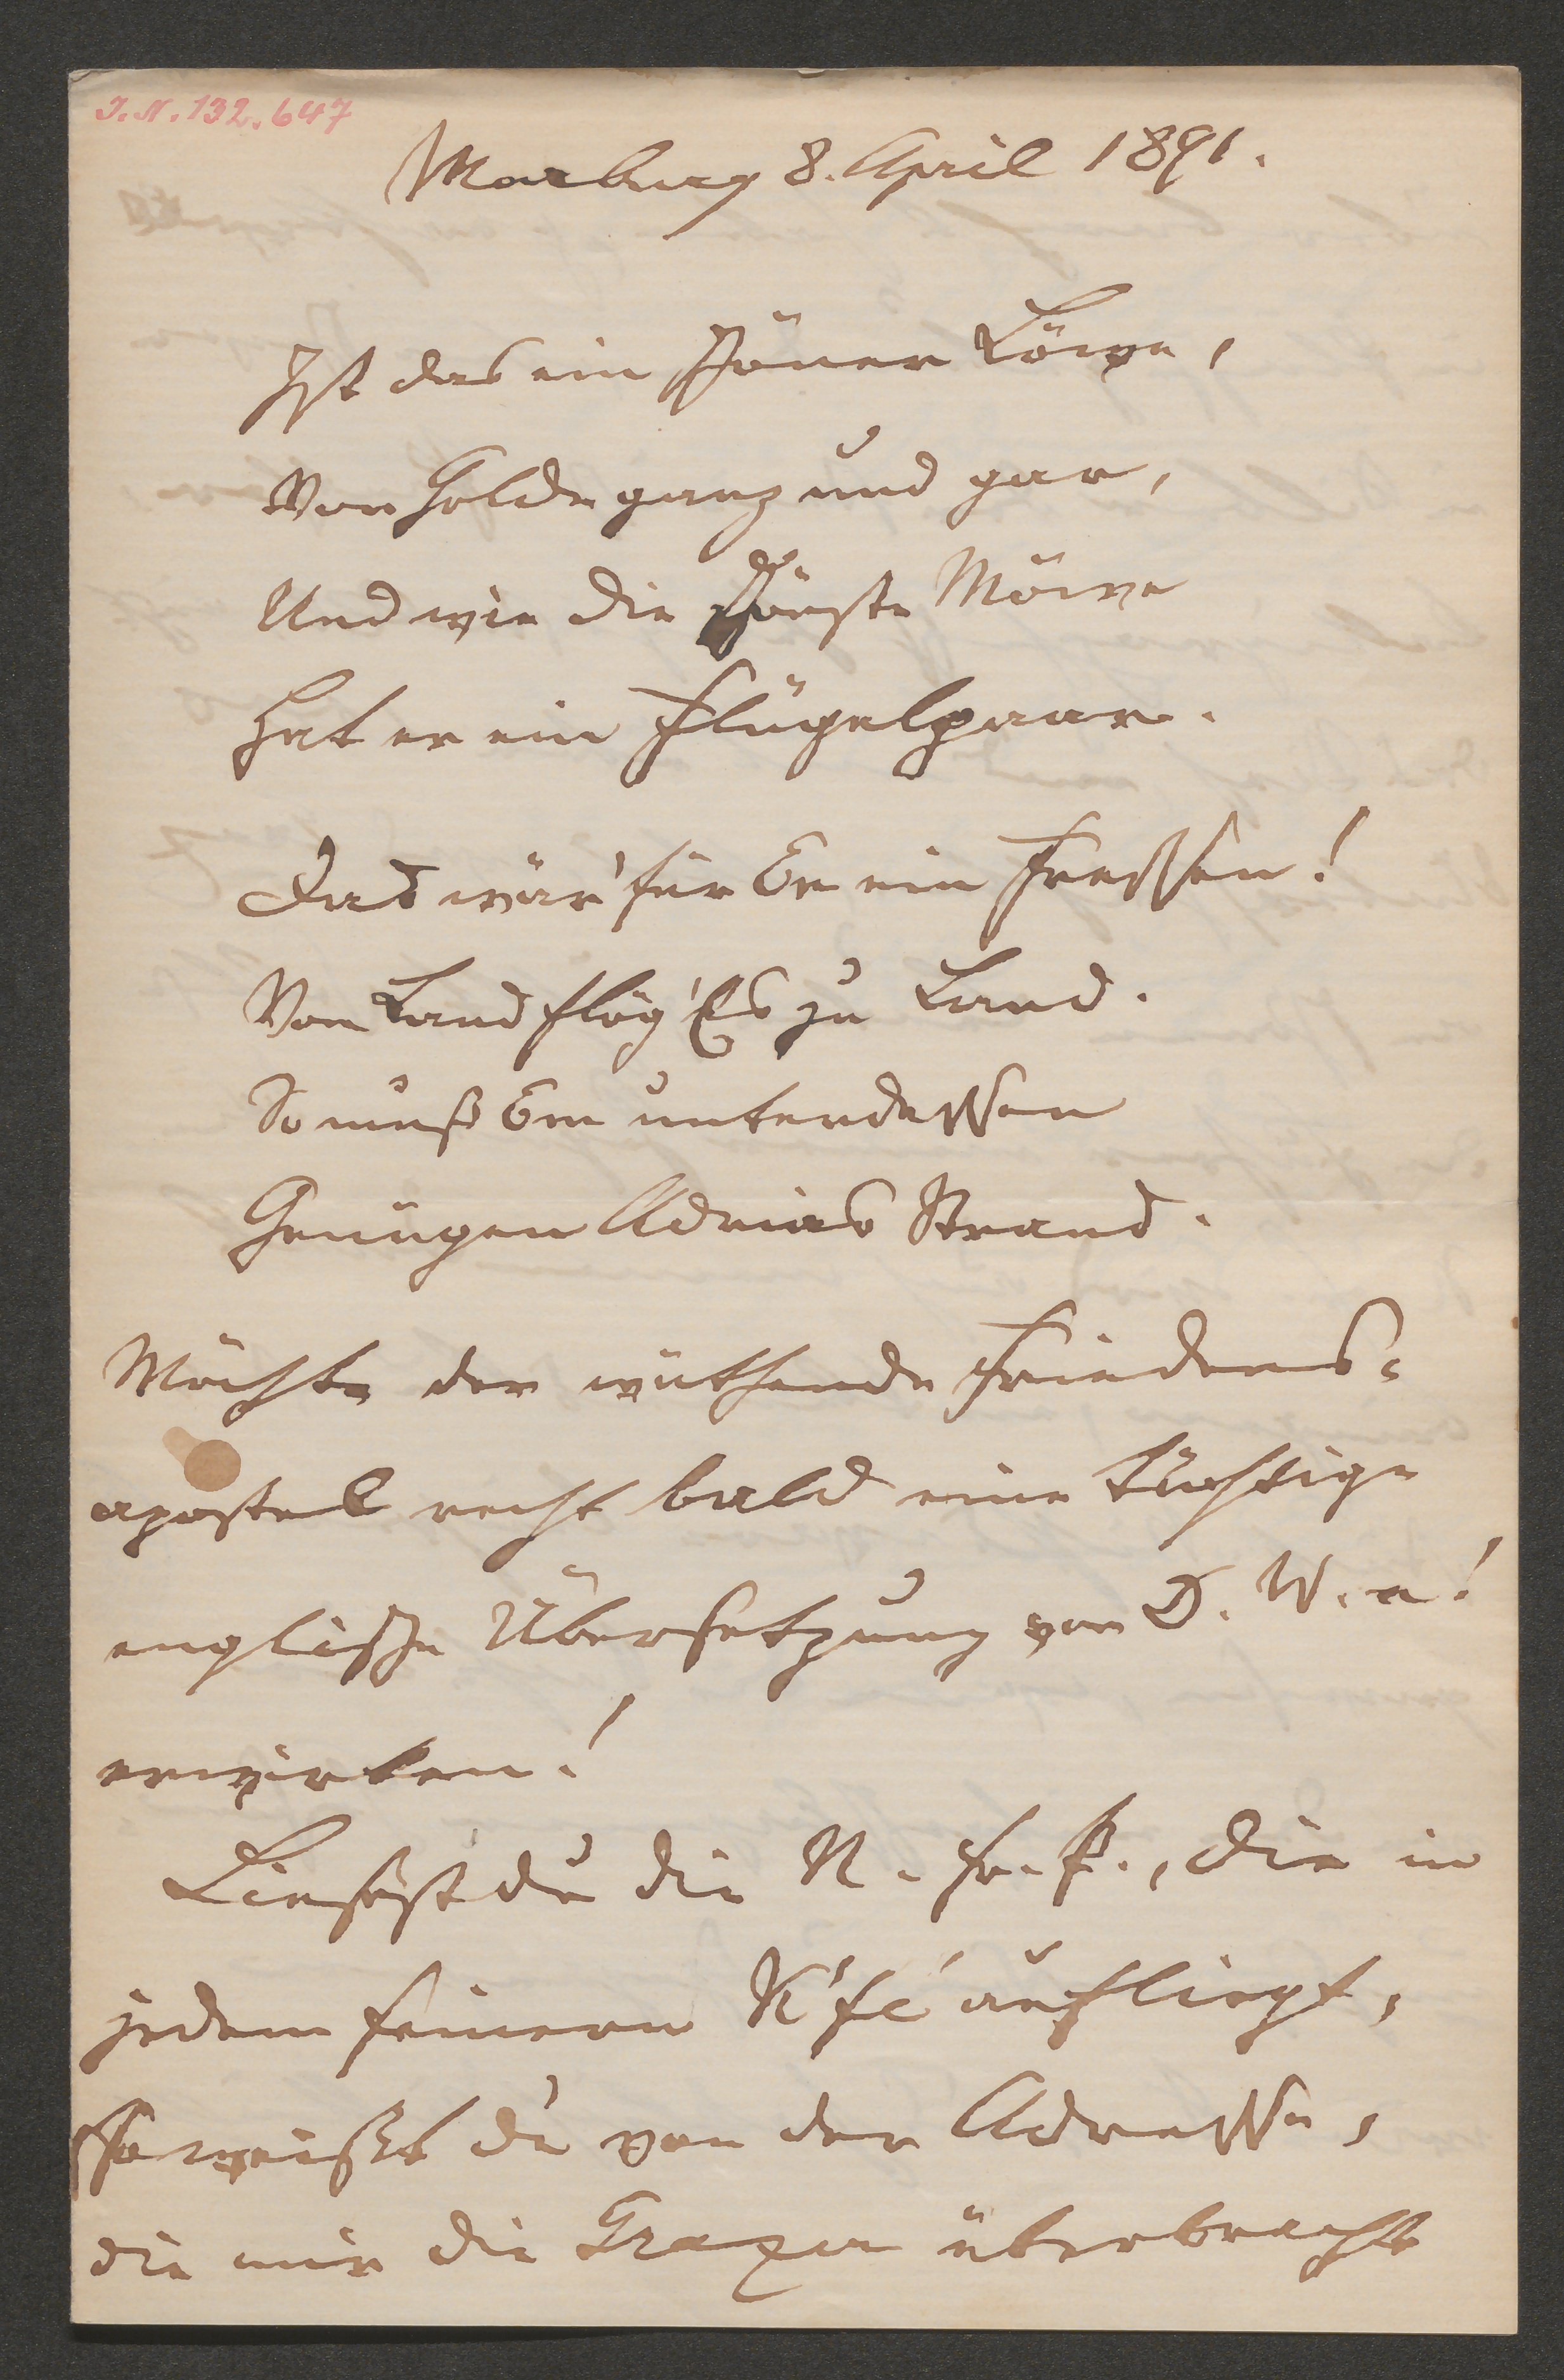 I.N. 132.647
Marburg 8. April 1891.
Ist das ein schöner Löwe,
Von Golde ganz und gar,
Und wie die schönste Möwe
Hat er ein Flügelpaar.
Das wär' für Es ein Fressen!
Von Land flög' Es zu Land.
So muß Em unterdessen
Genügen Adrias Strand.
Möchte der wüthende Friedens-
apostel recht bald eine tüchtige
englische Übersetzung von D. W. n!
erwirken!
Liesest du die N. fr. P., die in
jedem feineren K'fé aufliegt,
so weißt du von der Adresse,
die mir die Grazer überbracht